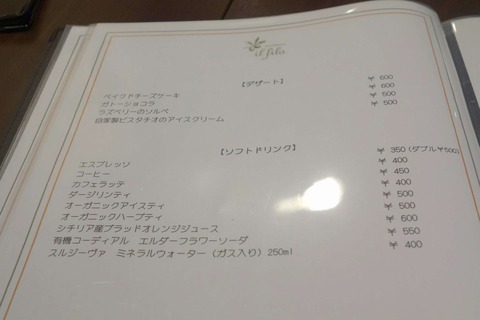 il filo
【デザート】
ベイクドチーズケーキ ¥ 600
ガトーショコラ ¥ 600
ラズベリーのソルベ ¥ 500
自家製ピスタチオのアイスクリーム ¥ 500
【ソフトドリンク】
エスプレッソ ¥ 350 (ダブル¥500)
コーヒー ¥ 400
カフェラッテ ¥ 450
ダージリンティ ¥ 400
オーガニックアイスティ ¥ 500
オーガニックハーブティ ¥ 500
シチリア産ブラッドオレンジジュース ¥ 600
有機コーディアル エルダーフラワーソーダ ¥ 550
スルジーヴァ ミネラルウォーター (ガス入り) 250ml ¥ 400